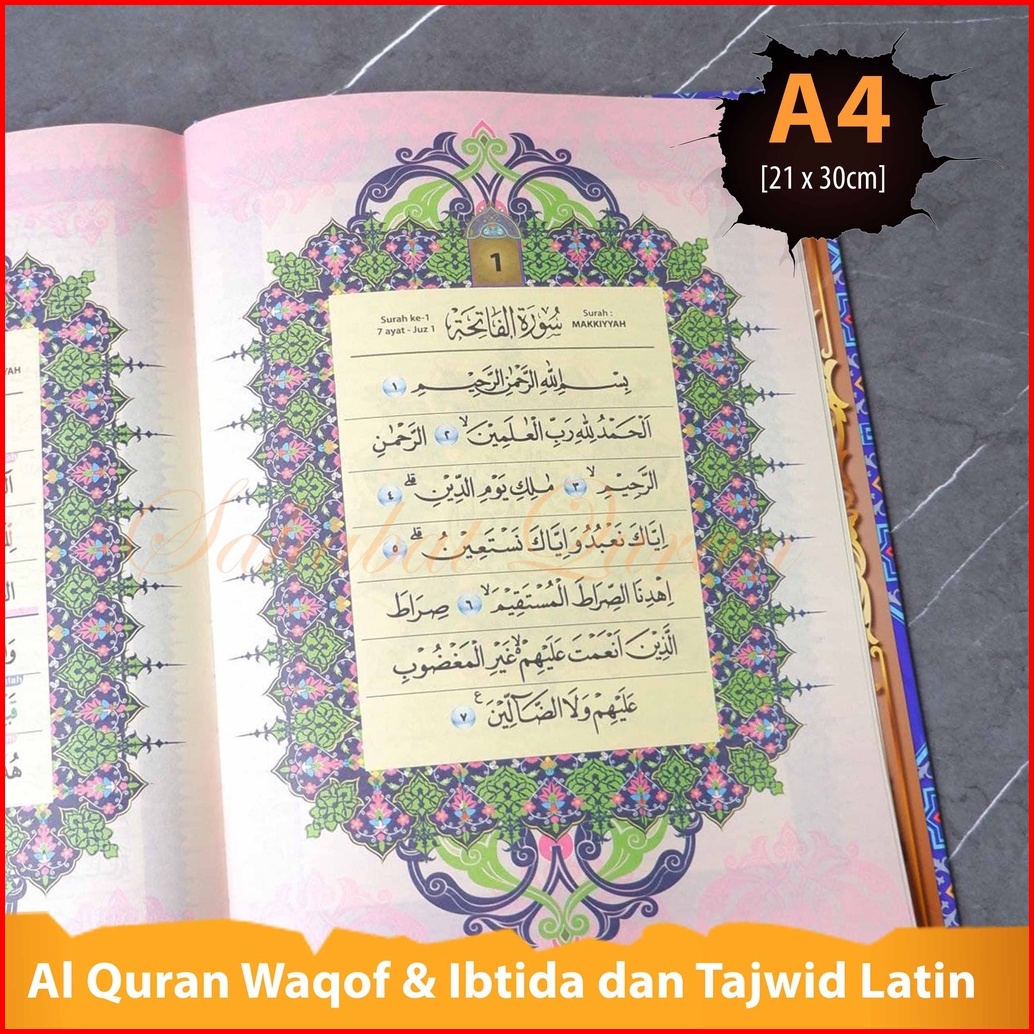 A4
[21 x 30cm]
1
Surah ke-1
7 ayat - Juz 1
سُوْرَةُ الْفَاتِحَةِ
Surah :
MAKKIYYAH
بِسْمِ اللهِ الرَّحْمٰنِ الرَّحِيْمِ ١
اَلْحَمْدُ لِلّٰهِ رَبِّ الْعٰلَمِيْنَۙ ٢ الرَّحْمٰنِ
الرَّحِيْمِۙ ٣ مٰلِكِ يَوْمِ الدِّيْنِۗ ٤
اِيَّاكَ نَعْبُدُ وَاِيَّاكَ نَسْتَعِيْنُۗ ٥
اِهْدِنَا الصِّرَاطَ الْمُسْتَقِيْمَۙ ٦ صِرَاطَ
الَّذِيْنَ اَنْعَمْتَ عَلَيْهِمْ ەۙ غَيْرِ الْمَغْضُوْبِ
عَلَيْهِمْ وَلَا الضَّاۤلِّيْنَࣖ ٧
Sahabat Quran
Al Quran Waqof & Ibtida dan Tajwid Latin